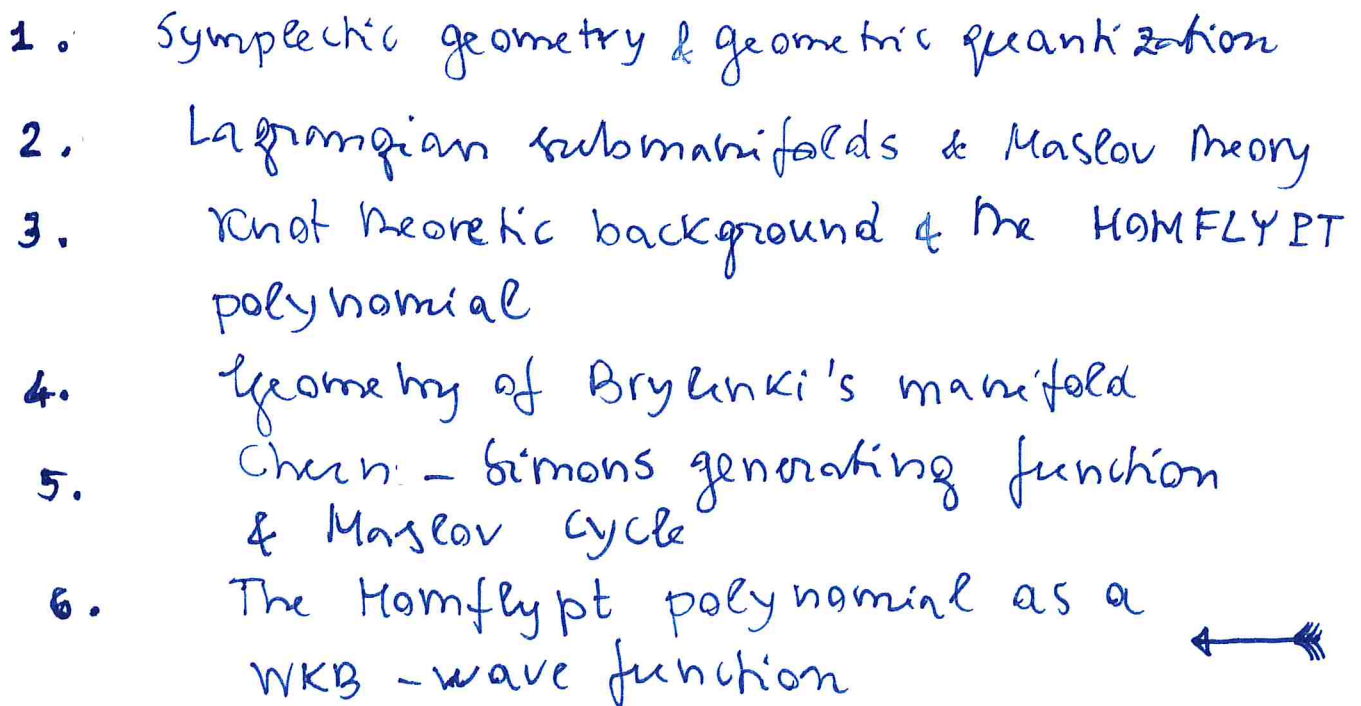 1. Symplectic geometry & geometric quantization
2. Lagrangian submanifolds & Maslov theory
3. Knot theoretic background & the HOMFLYPT
polynomial
4. Geometry of Brylinki's manifold
5. Chern - Simons generating function
& Maslov cycle
6. The Homflypt polynomial as a
WKB - wave function